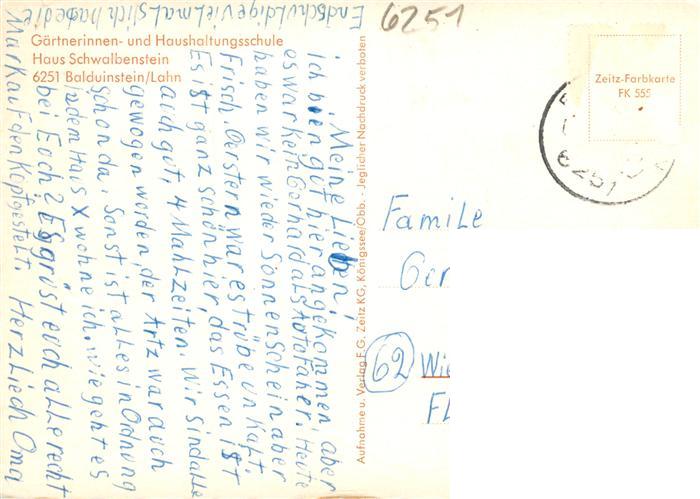 Gärtnerinnen- und Haushaltungsschule
Haus Schwalbenstein
6251 Balduinstein/Lahn
6251
Zeitz-Farbkarte
FK 555
6251
Aufnahme u. Verlag F.G. Zeitz KG, Königssee/Obb. - Jeglicher Nachdruck verboten
Meine Lieben,
ich bin gut hier angekommen, aber
es war kein Gerhard als Autofaher. Heute
haben wir wieder Sonnenschein aber
Frisch. Gerstern war es trübe un Kalt.
Es ist ganz schön hier, das Essen ist
auch gut, 4 Mahlzeiten. Wir sind alle
gewogen worden, der Artz war auch
schon da. Sonst ist alles in Ordnung
in dem Haus X wohne ich. wie geht es
bei Euch? Es grüst euch alle recht
Herzliech Oma
Mark auf den Kopf gestelt.
Endschuldige vielmals ich habe die
Famile
Ger
62 Wie